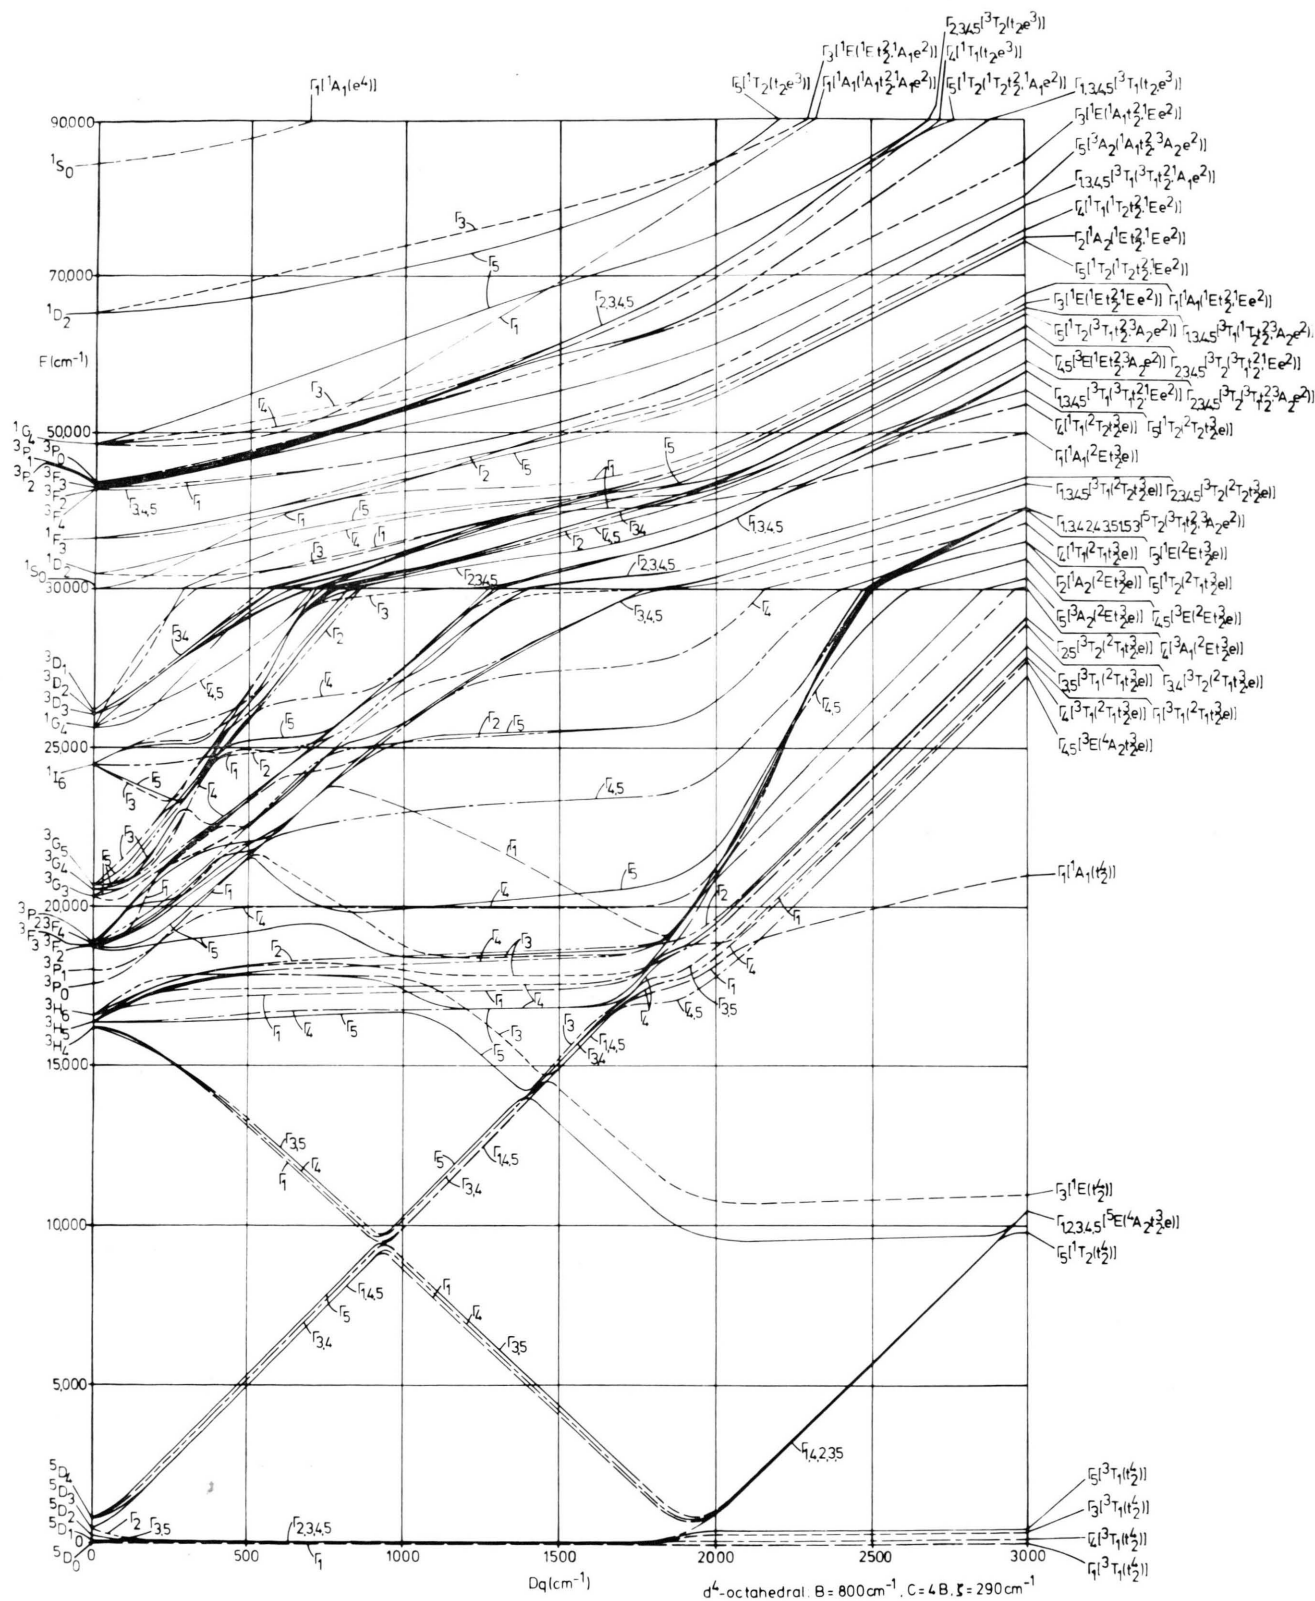 Γ₁[¹A₁(e⁴)]
Γ₅[¹T₂(t₂e³)]
Γ₃[¹E(¹Et₂²,¹A₁e²)]
Γ₁[¹A₁(¹A₁t₂²,¹A₁e²)]
Γ₂,₃,₄,₅[³T₂(t₂e³)]
Γ₄[¹T₁(t₂e³)]
Γ₅[¹T₂(¹T₂t₂²,¹A₁e²)]
Γ₁,₃,₄,₅[³T₁(t₂e³)]
Γ₃[¹E(¹A₁t₂²,¹Ee²)]
Γ₅[³A₂(¹A₁t₂²,³A₂e²)]
Γ₁,₃,₄,₅[³T₁(³T₁t₂²,¹A₁e²)]
Γ₄[¹T₁(¹T₂t₂²,¹Ee²)]
Γ₂[¹A₂(¹Et₂²,¹Ee²)]
Γ₅[¹T₂(¹T₂t₂²,¹Ee²)]
Γ₃[¹E(¹Et₂²,¹Ee²)] Γ₁[¹A₁(¹Et₂²,¹Ee²)]
Γ₅[¹T₂(³T₁t₂²,³A₂e²)] Γ₁,₃,₄,₅[³T₁(¹T₂t₂²,³A₂e²)]
Γ₄,₅[³E(¹Et₂²,³A₂e²)] Γ₂,₃,₄,₅[³T₂(³T₁t₂²,¹Ee²)]
Γ₁,₃,₄,₅[³T₁(³T₁t₂²,¹Ee²)] Γ₂,₃,₄,₅[³T₂(³T₁t₂²,³A₂e²)]
Γ₄[¹T₁(²T₂t₂³,e)] Γ₅[¹T₂(²T₂t₂³,e)]
Γ₁[¹A₁(²Et₂³,e)]
Γ₁,₃,₄,₅[³T₁(²T₂t₂³,e)] Γ₂,₃,₄,₅[³T₂(²T₂t₂³,e)]
Γ₄[¹T₁(²T₁t₂³,e)] Γ₃[¹E(²Et₂³,e)]
Γ₂[¹A₂(²Et₂³,e)] Γ₅[¹T₂(²T₁t₂³,e)]
Γ₅[³A₂(²Et₂³,e)] Γ₄,₅[³E(²Et₂³,e)]
Γ₂,₅[³T₂(²T₁t₂³,e)] Γ₄[³A₁(²Et₂³,e)]
Γ₃,₅[³T₁(²T₁t₂³,e)] Γ₃,₄[³T₂(²T₁t₂³,e)]
Γ₄[³T₁(²T₁t₂³,e)] Γ₁[³T₁(²T₁t₂³,e)]
Γ₄,₅[³E(⁴A₂t₂³,e)]
Γ₁[¹A₁(t₂⁴)]
Γ₃[¹E(t₂⁴)]
Γ₁,₂,₃,₄,₅[⁵E(⁴A₂t₂³,e)]
Γ₅[¹T₂(t₂⁴)]
Γ₅[³T₁(t₂⁴)]
Γ₃[³T₁(t₂⁴)]
Γ₄[³T₁(t₂⁴)]
Γ₁[³T₁(t₂⁴)]
90,000
¹S₀
70,000
¹D₂
E(cm⁻¹)
50,000
¹G₄
³P₀
³P₁
³P₂
³F₃
³F₂
³F₄
¹F₃
¹D₂
¹S₀
30,000
³D₁
³D₂
³D₃
¹G₄
25,000
¹I₆
³G₅
³G₄
³G₃
20,000
³P₂ ³F₄
³F₃ ³F₂
³P₁
³P₀
³H₆
³H₅
³H₄
15,000
10,000
5,000
⁵D₄
⁵D₃
⁵D₂
⁵D₁
⁵D₀
0
Γ₃
Γ₅
Γ₂,₃,₄,₅
Γ₁
Γ₃
Γ₄
Γ₅
Γ₂ Γ₅
Γ₁
Γ₃,₄,₅ Γ₁
Γ₁ Γ₅
Γ₁,₃,₄,₅
Γ₃,₄
Γ₄ Γ₁
Γ₂ Γ₄,₅
Γ₃
Γ₂,₃,₄,₅
Γ₂,₃,₄,₅
Γ₃
Γ₃,₄,₅
Γ₄
Γ₃,₄
Γ₂
Γ₄,₅
Γ₄
Γ₄,₅
Γ₅
Γ₂ Γ₅
Γ₁ Γ₂
Γ₅
Γ₃
Γ₄
Γ₄,₅
Γ₃
Γ₅
Γ₁
Γ₁ Γ₁
Γ₅
Γ₄
Γ₂
Γ₄
Γ₁
Γ₅
Γ₂
Γ₄ Γ₃
Γ₄
Γ₁
Γ₁ Γ₄
Γ₄
Γ₄,₅
Γ₃,₅
Γ₁ Γ₄ Γ₅
Γ₃
Γ₃
Γ₁,₄,₅
Γ₅
Γ₃,₄
Γ₃,₅
Γ₄
Γ₁
Γ₅
Γ₁,₄,₅
Γ₃,₄
Γ₁,₄,₅
Γ₅
Γ₃,₄
Γ₁
Γ₄
Γ₃,₅
Γ₁,₄,₂,₃,₅
Γ₂ Γ₃,₅
Γ₂,₃,₄,₅
Γ₁
0 500 1000 1500 2000 2500 3000
Dq(cm⁻¹)
d⁴-octahedral. B=800cm⁻¹, C=4B, ζ=290cm⁻¹